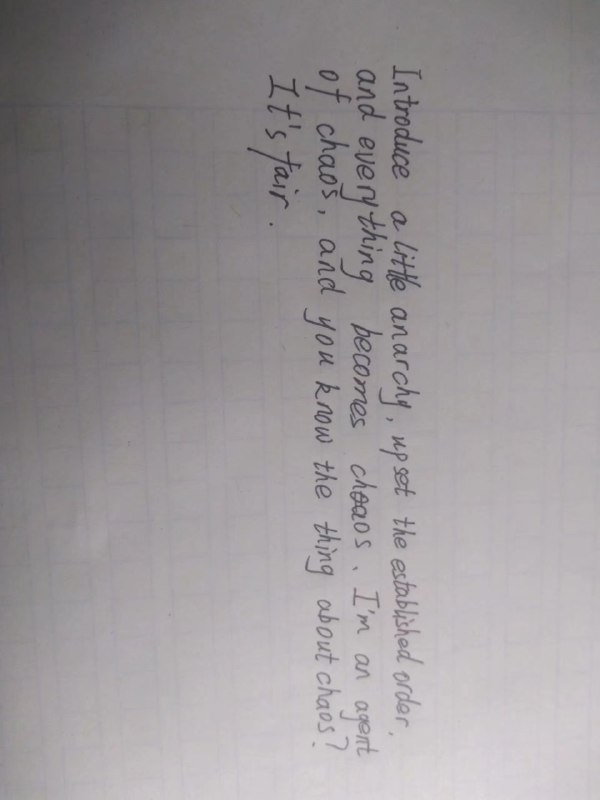 Introduce a little anarchy, upset the established order,
and everything becomes chaos. I'm an agent
of chaos, and you know the thing about chaos?
It's fair.